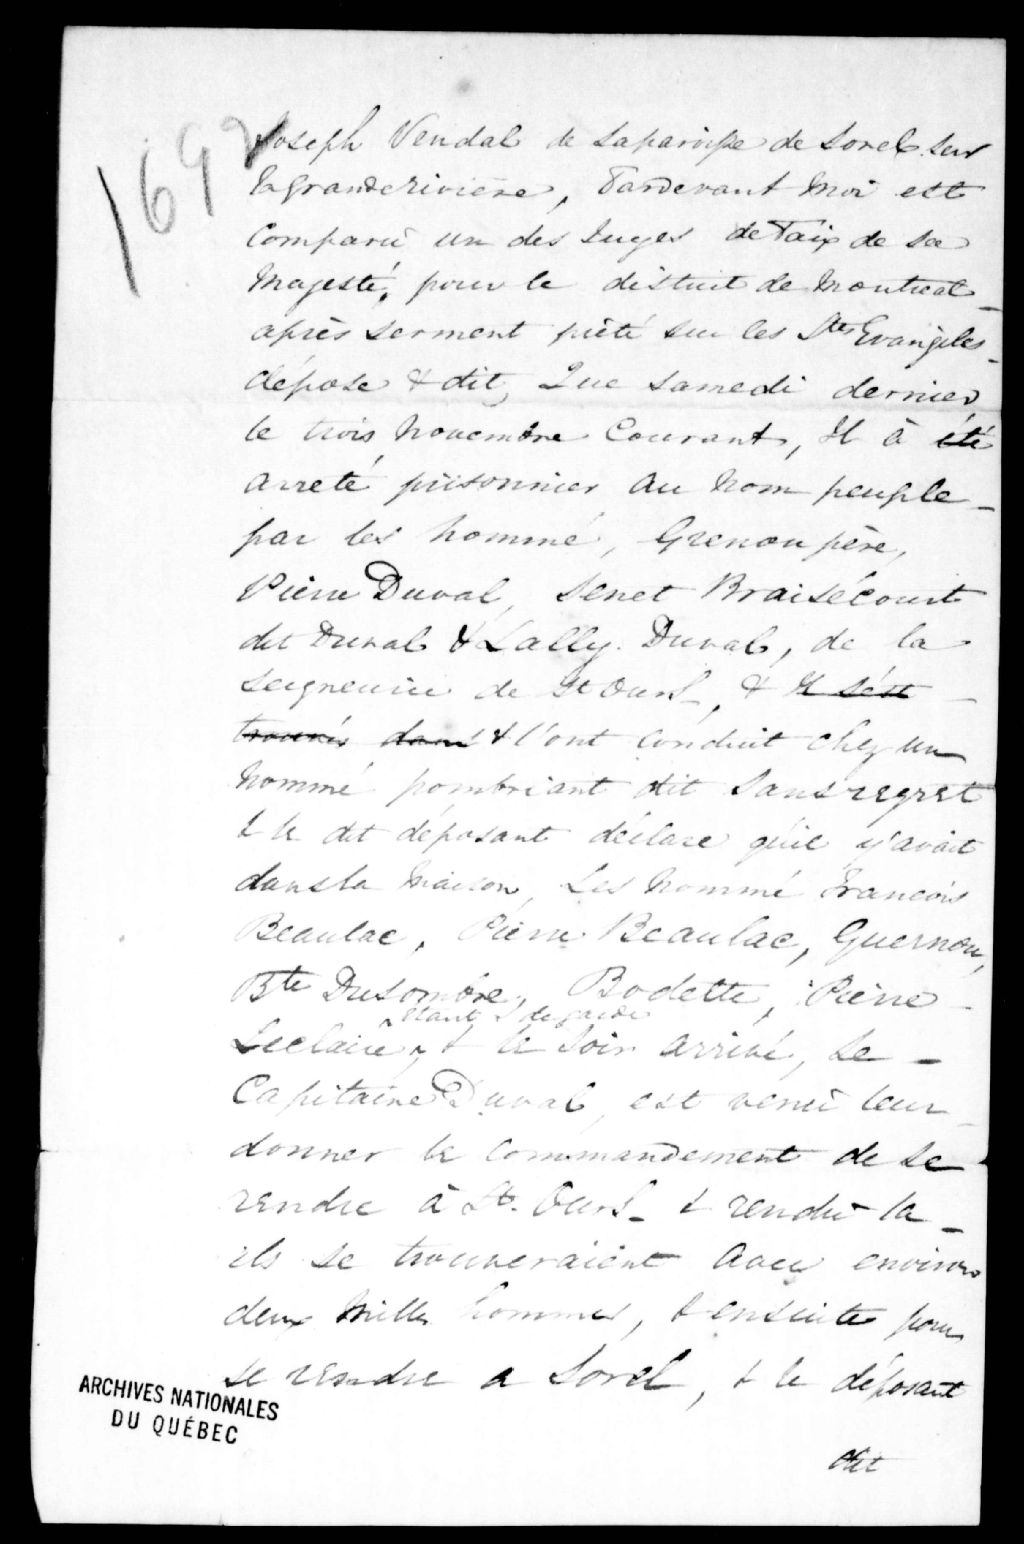 1692
Joseph Vendal de la paroisse de Sorel sur
la grande rivière, Pardevant Moi est
Comparu un des Juges de Paix de Sa
Majesté, pour le district de Montreal
après serment prêté sur les Stes Evangiles
dépose & dit, Que samedi dernier
le trois Novembre Courant, Il à été
arreté prisonnier Au Nom peuple
par les nommé, Grenou père,
Pierre Duval, Senet Braisécourt
dit Duval & Lally Duval, de la
seigneurie de St Ours, & Il s'est
trouvés dans & l'ont conduit chez un
Nommé pombriant dit Sansregret
& le dit déposant déclare qu'il y'avait
dans la Maison, Les Nommé Francois
Beaulac, Pierre Beaulac, Guernou,
Bte Dusombre, Bodette, Pierre
étant de garde
Leclaire, & le Soir arrivé, Le
Capitaine Duval, est venu leur
donner le Commandement de se
rendre à St. Ours & rendu la
ils se trouveraient Avec environ
deux Mille hommes, & ensuite pour
se rendre a Sorel, & le déposant
dit
ARCHIVES NATIONALES
DU QUÉBEC